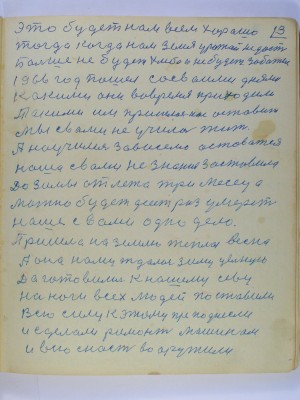 Это будет нам всем хорошо 13
тогда когда нам земля урожай недаст
больше не будет хлеба и небудет заботы
1966 год пошел со своими днями
Какими они вовремя приходили
Такими им
Мы с вами не учила жит
А научила зависела оставатся
наша с вами не знания заставила
До зимы от лета три месеца
можно будет дват раз умереть
наше с вами одно дело.
Пришла на землю теплая весна
А она нам ждала зиму
Да готовились к нашему севу
На ноги всех людей поставили
Всю силу к этому преподнесли
и сделали ремонт машинам
и всю снаст вооружили